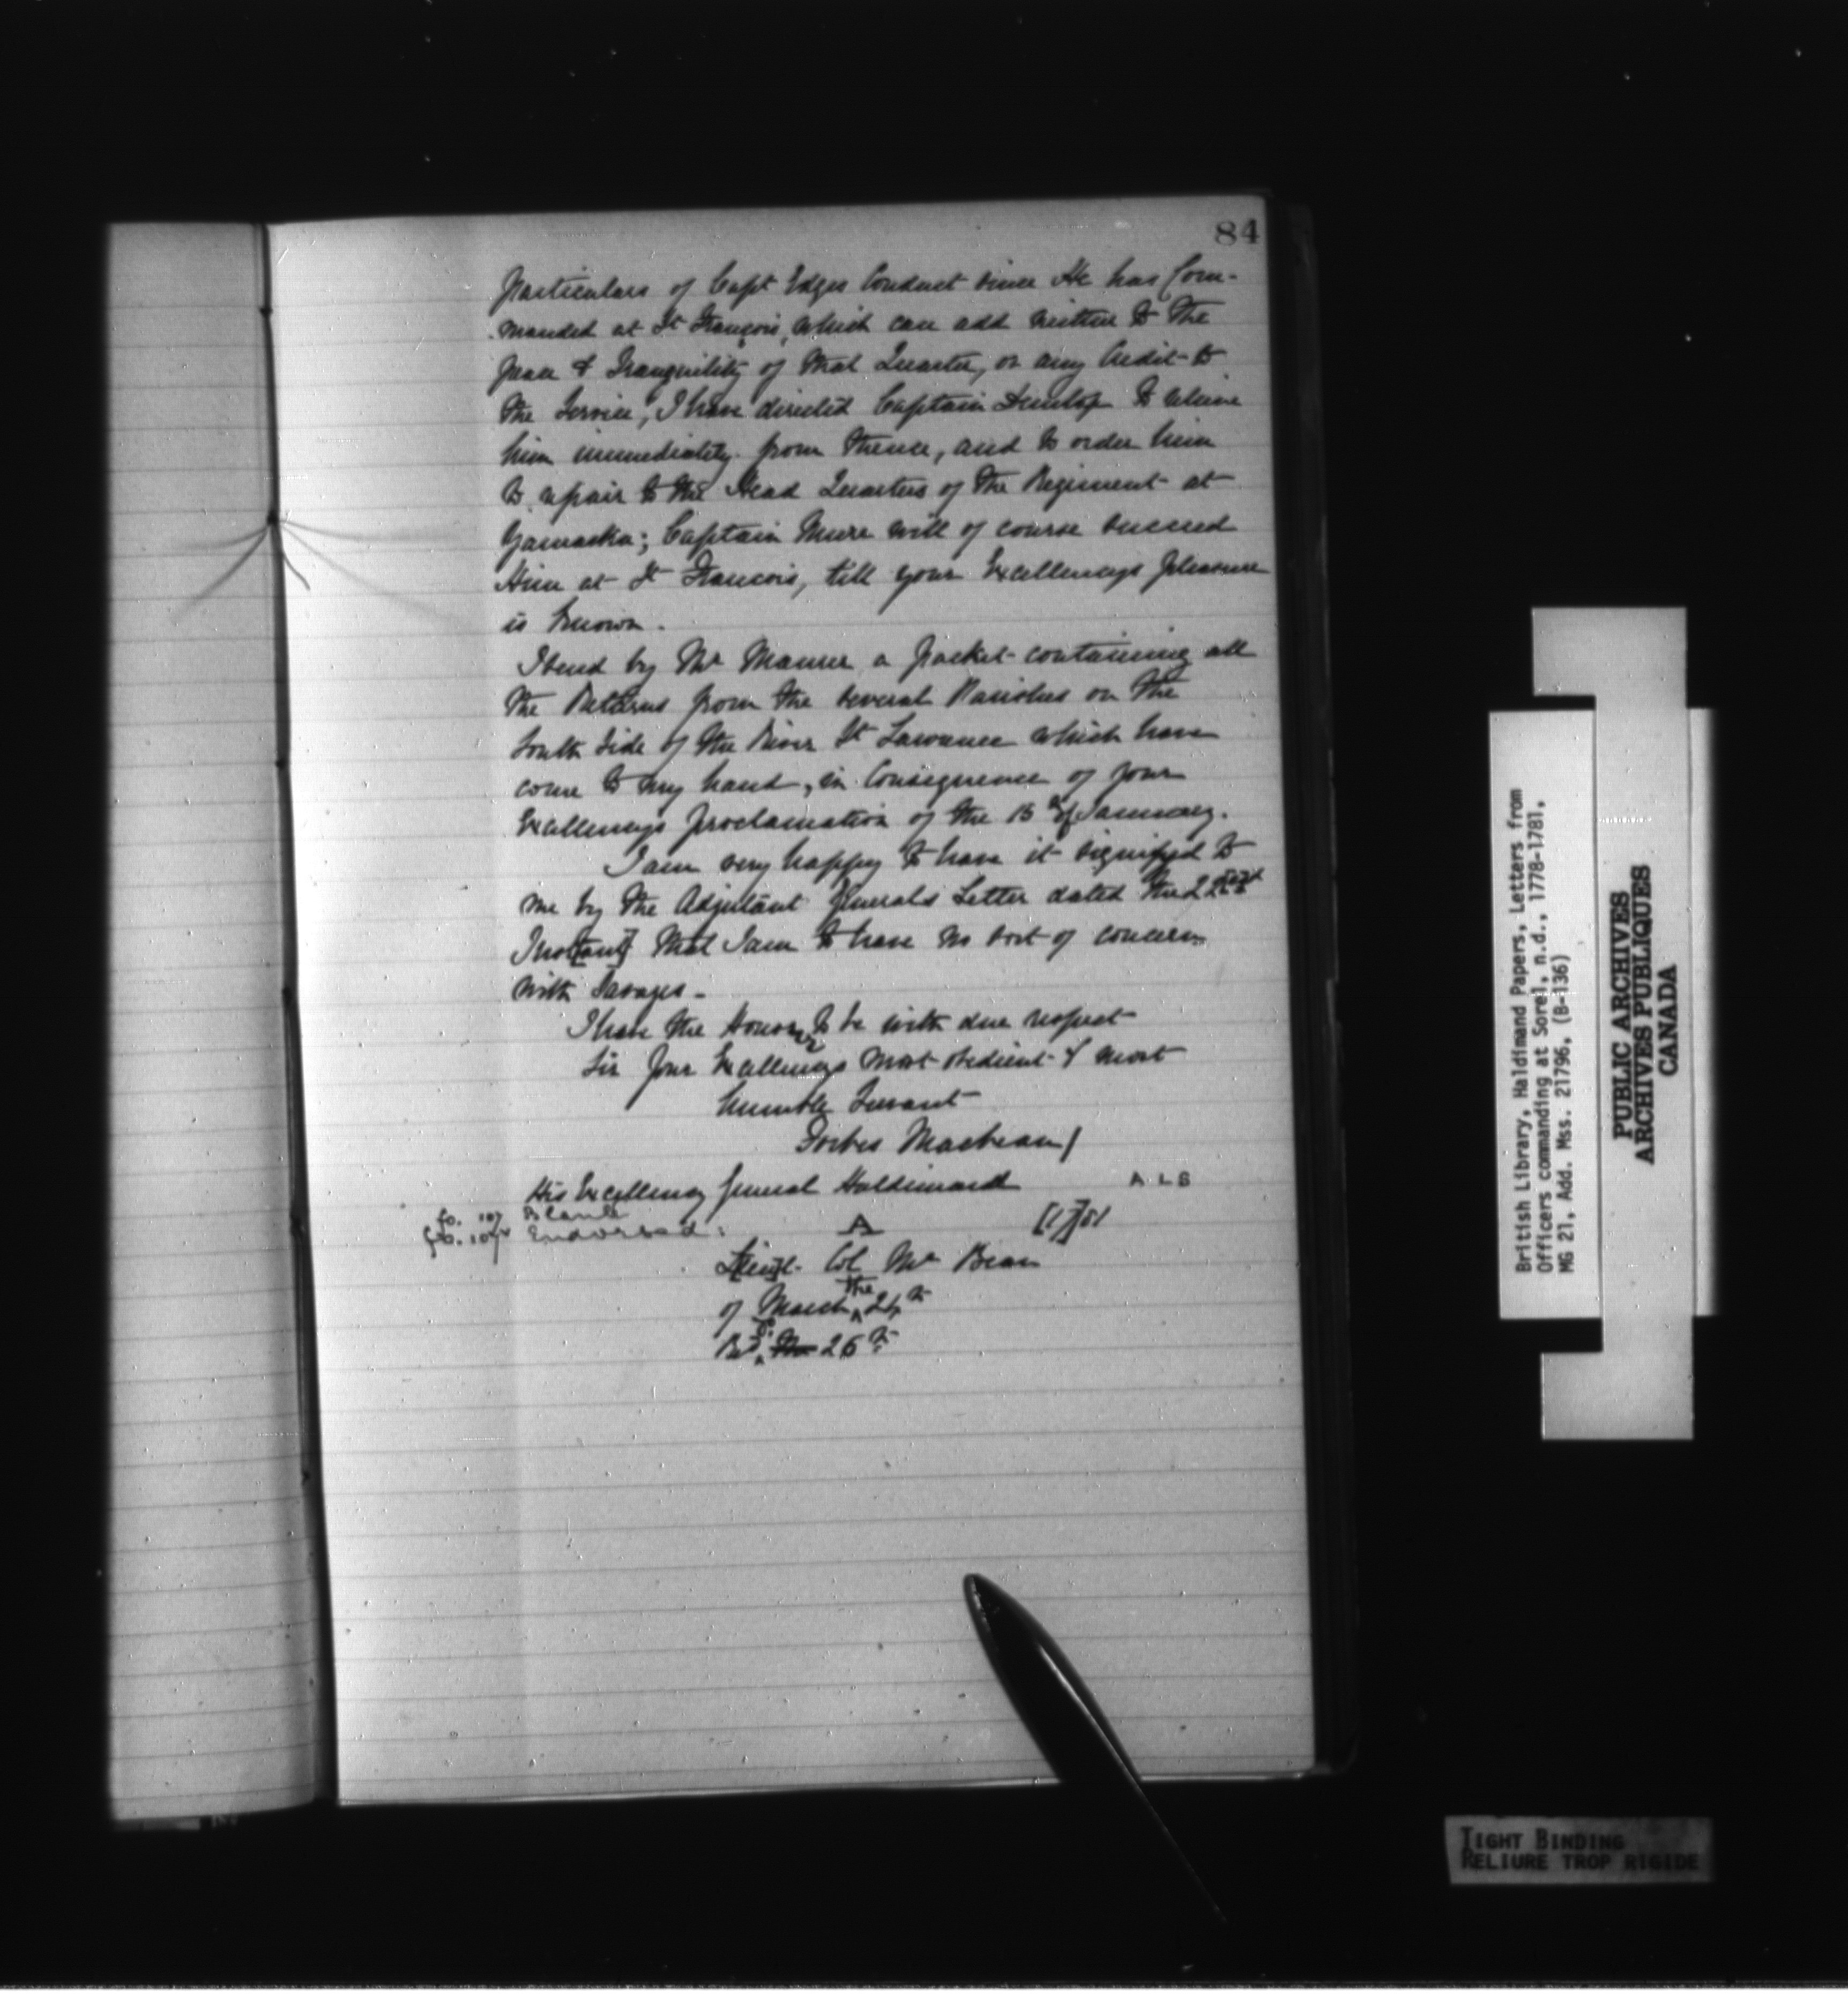 84
particulars of Capt Edges Conduct since He has Com-
manded at St François, which can add neither to the
peace & Tranquility of that Quarter, or any Credit to
the Service, I have directed Captain Dunlop to relieve
him immediately from thence, and to order him
to repair to the Head Quarters of the Regiment at
Yamaska; Captain Mure will of course succeed
Him at St Francois, till your Excellencys pleasure
is known.
I send by Mr Maurer a packet containing all
the Returns from the several Parishes on the
South Side of the River St Lawrence which have
come to my hand, in Consequence of your
Excellencys proclamation of the 15th of January.
I am very happy to have it signifyd to
me by the Adjutant Generals Letter dated the 22nd
Inst[ant] that I am to have no sort of concern
with Savages -
I have the Honor to be with due respect
Sir Your Excellencys most obedient & most
humble Servant
Forbes Macbean /
His Excellency General Haldimand
A L S
fo. 107 Blank
fo. 107v Endorsed:
A
[17]81
L[ieu]t- Col Mc Bean
of March the 24th
Recd 26th
British Library, Haldimand Papers, Letters from
Officers commanding at Sorel, n.d., 1778-1781,
MG 21, Add. Mss. 21796, (B-136)
PUBLIC ARCHIVES
ARCHIVES PUBLIQUES
CANADA
TIGHT BINDING
RELIURE TROP RIGIDE